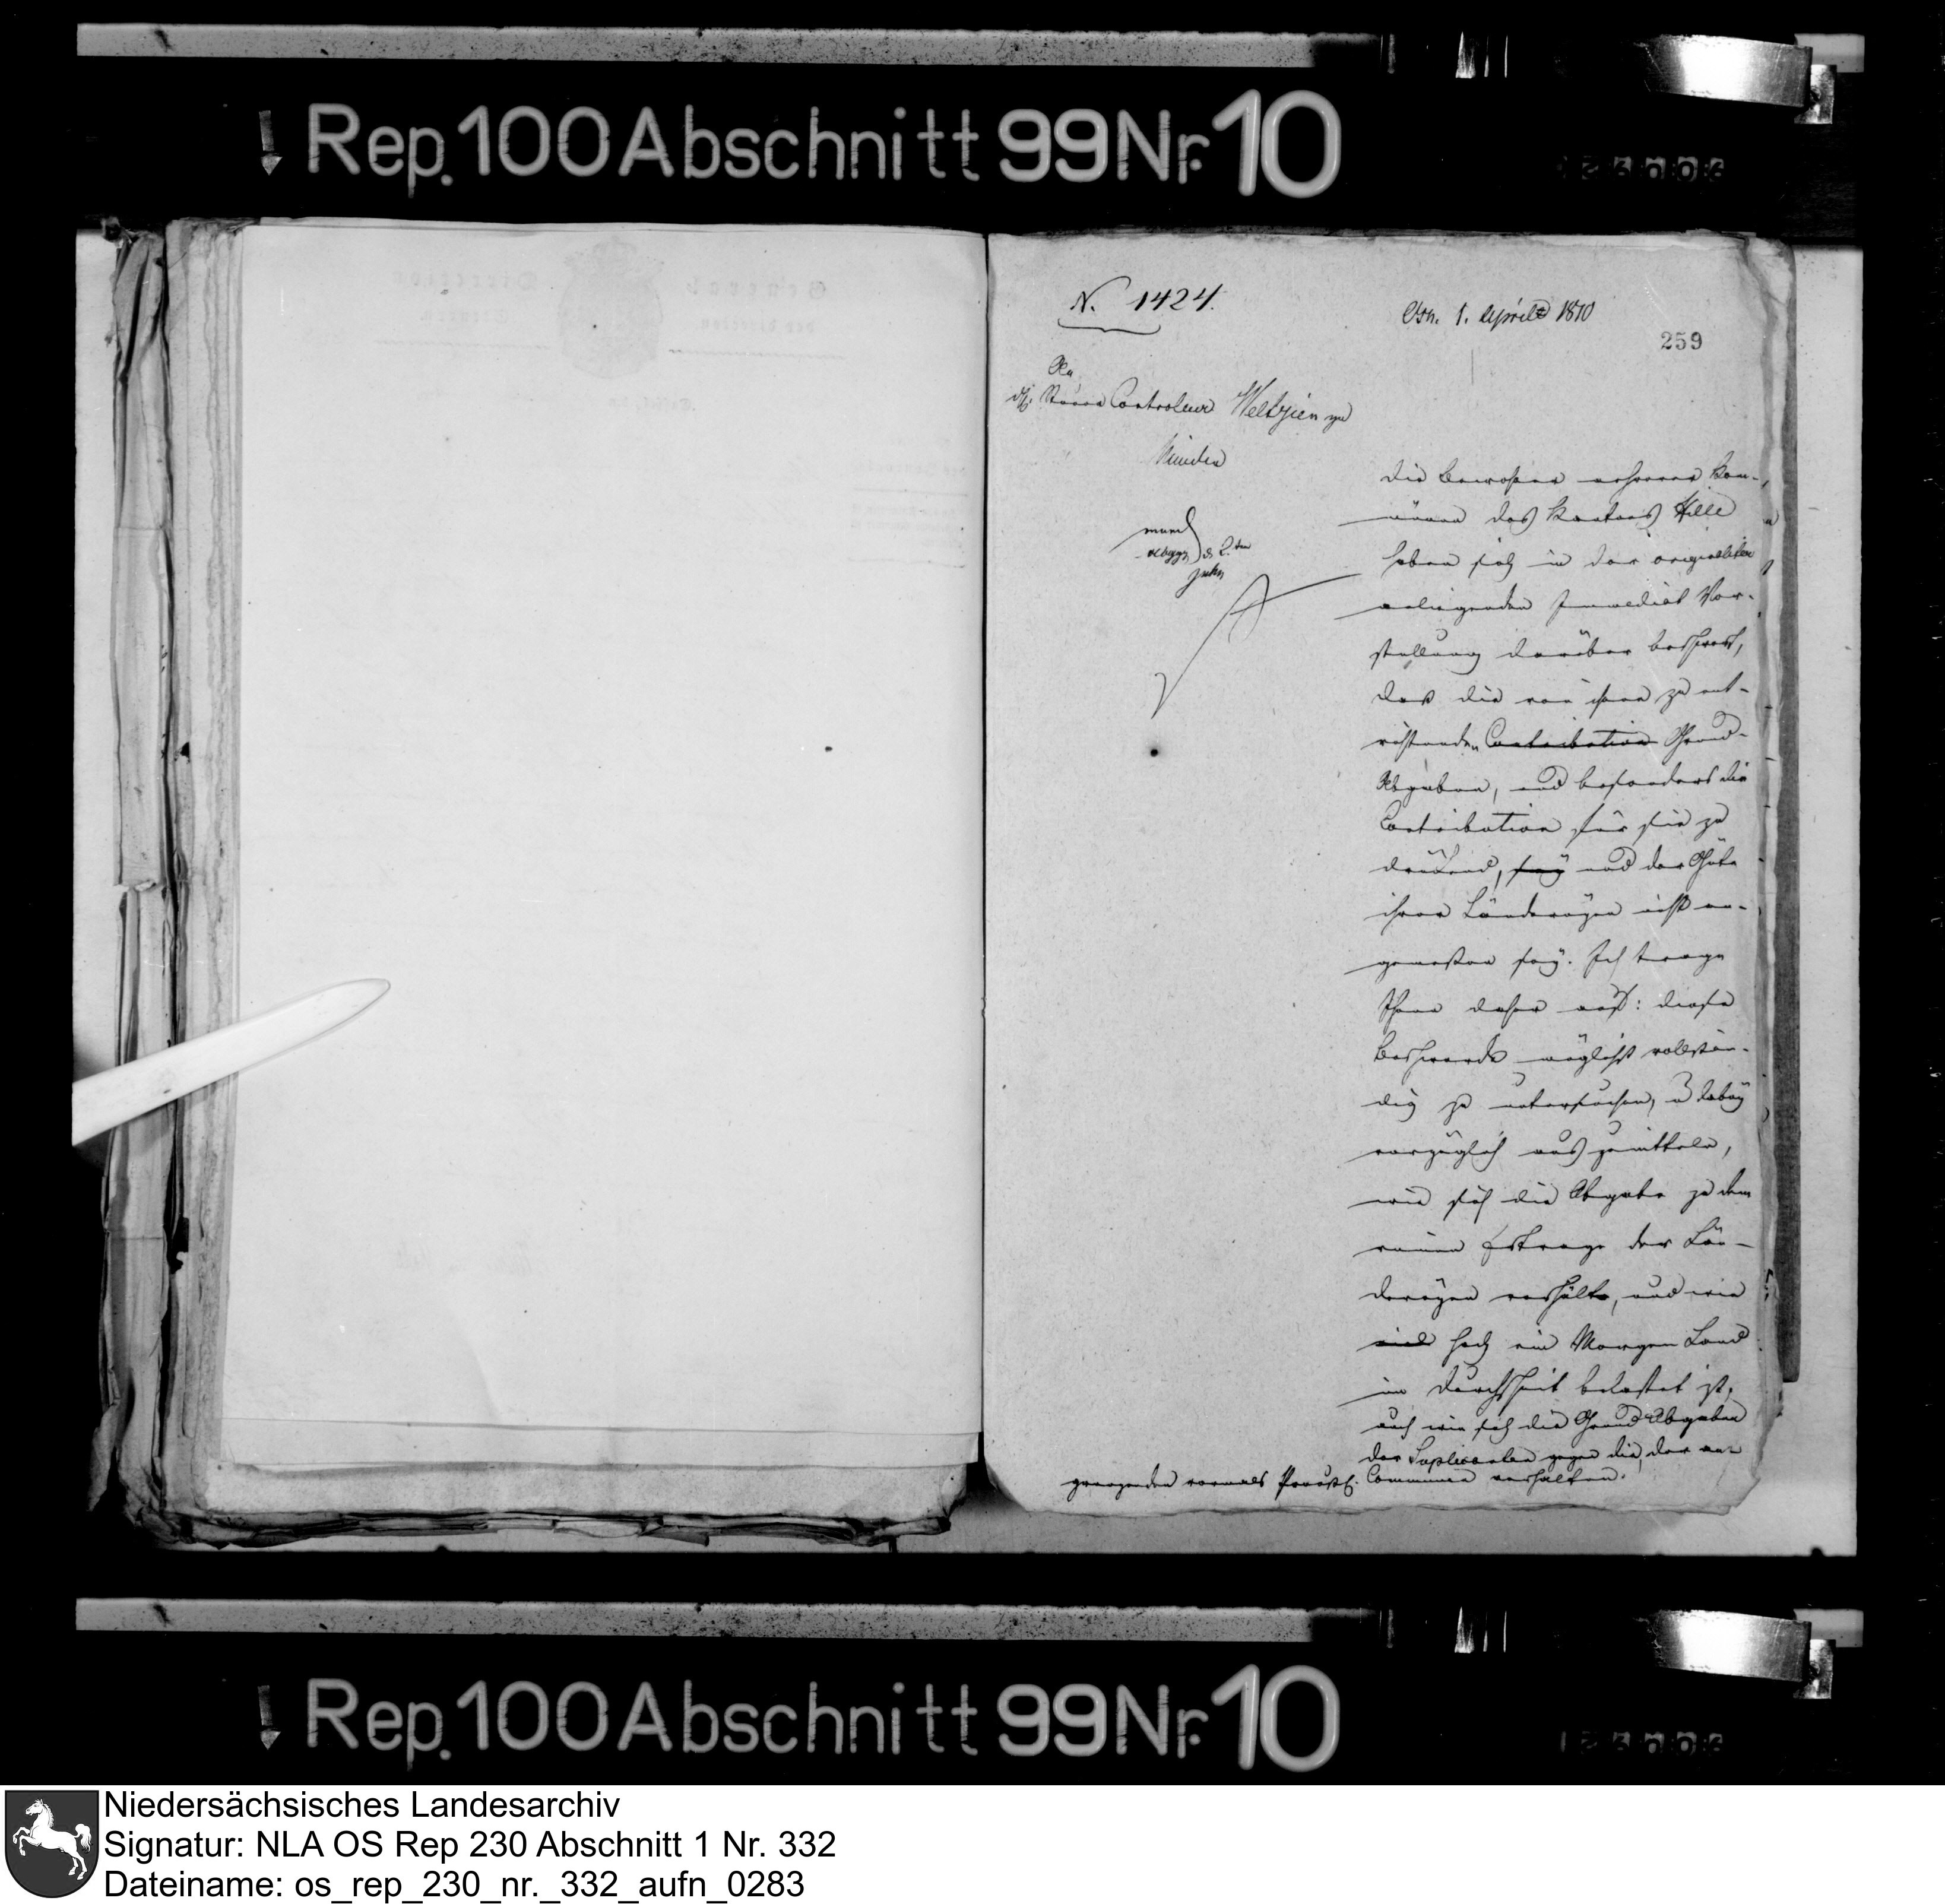 Rep. 100 Abschnitt 99 Nr. 10
N. 1424.
Osn. 1. April 1810
259
An
den Steuer Controleur Weltzien zu
Minden
mund
abgeg. d. 2. ten
Die Bewohner mehrerer Kom-
münen des Kantons Hille
haben sich in der originaliter
anliegenden Immediat Vor-
stellung darüber beschwert,
daß die von ihnen zu ent-
richtenden Contribution Grund-
Abgaben, und besonders die
Contribution für sie zu
drückend, sey und der Güte
ihrer Ländereyen nicht an-
gemessen sey. Ich trage
Ihnen daher auf: diese
Beschwerde möglichst vollstän-
dig zu untersuchen, u dabey
vorzüglich auszumitteln,
wie sich die Abgabe zu dem
reinen Ertrage der Län-
dereyen verhält, und wie
viel hoch ein Morgen Land
im Durchschnit belastet ist,
auch wie sich die Grund Abgaben
der Suplicanten gegen die, der an-
grenzenden vormals Preußl. Communen verhalten.
Rep. 100 Abschnitt 99 Nr. 10
Niedersächsisches Landesarchiv
Signatur: NLA OS Rep 230 Abschnitt 1 Nr. 332
Dateiname: os_rep_230_nr._332_aufn_0283